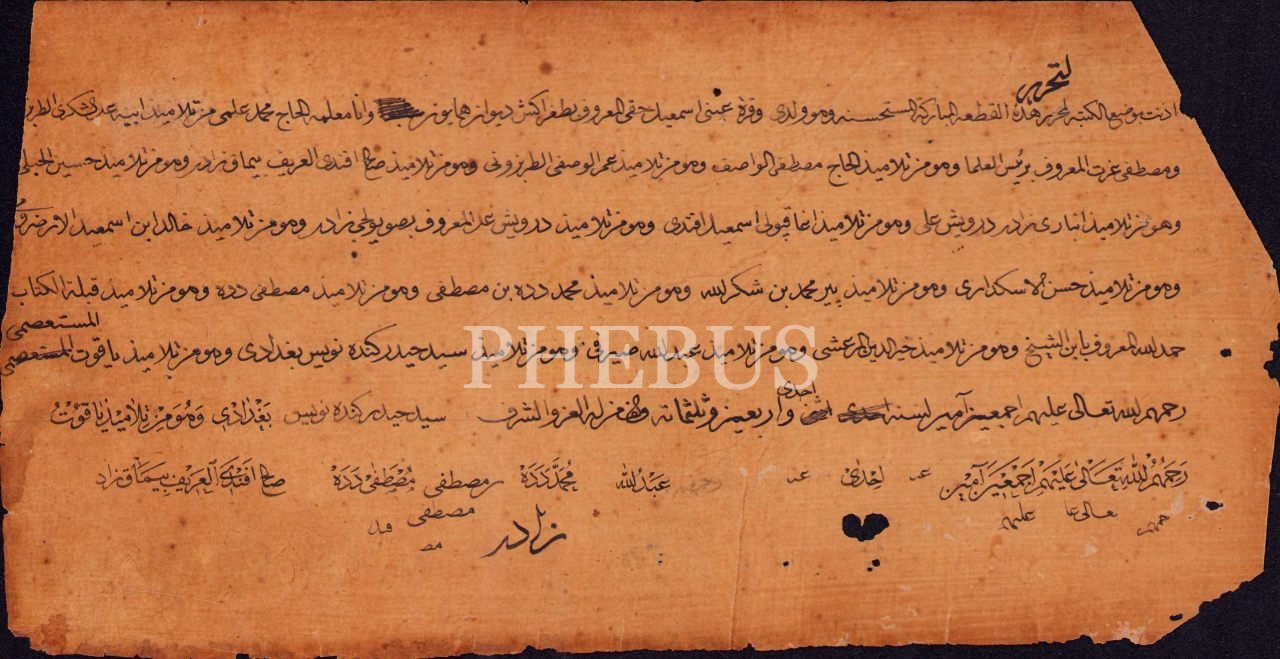 لتحرير
اذنت بوضع الكتبه لمحرر هذه القطعه المباركة المستحسنه وهو ولدى وقرة عينى اسمعيل حقى المعروف بطغراكش ديوان همايون وانا معلمه الحاج محمد علمى من تلاميذ ابيه
ومصطفى عزت المعروف برئيس العلما وهو من تلاميذ الحاج مصطفى الواصف وهو من تلاميذ عمر الوصفى الطربزونى وهو من تلاميذ صالح افندى العريف بيماق زاده وهو من تلاميذ حسين
وهو من تلاميذ انبارى زاده درويش على وهو من تلاميذ اغا قپولى اسمعيل افندى وهو من تلاميذ درويش على المعروف بصويولجى زاده وهو من تلاميذ خالد ابن اسمعيل الارضرومى
وهو من تلاميذ حسن الاسكدارى وهو من تلاميذ پير محمد بن شكر الله وهو من تلاميذ محمد دده بن مصطفى وهو من تلاميذ مصطفى دده وهو من تلاميذ قبلة الكتاب
حمد الله المعروف بابن الشيخ وهو من تلاميذ خير الدين المرعشى وهو من تلاميذ عبد الله صيرفى وهو من تلاميذ سيد حيدر كنده نويس بغدادى وهو من تلاميذ ياقوت المستعصمى المستعصمى
رحمهم الله تعالى عليهم اجمعين آمين لسنه احدى واربعين وثلثمائه من له العز والشرف سيد حيدر كنده نويس بغدادى وهو من تلاميذ ياقوت
رحمهم الله تعالى عليهم اجمعين آمين عـ احدى عنه رحمهم عبد الله محمد دده ر مصطفى مصطفى دده صالح افندى العريف بيماق زاد
حمهم عالى عا عليهم زاده مصطفى مصـ
PHEBUS